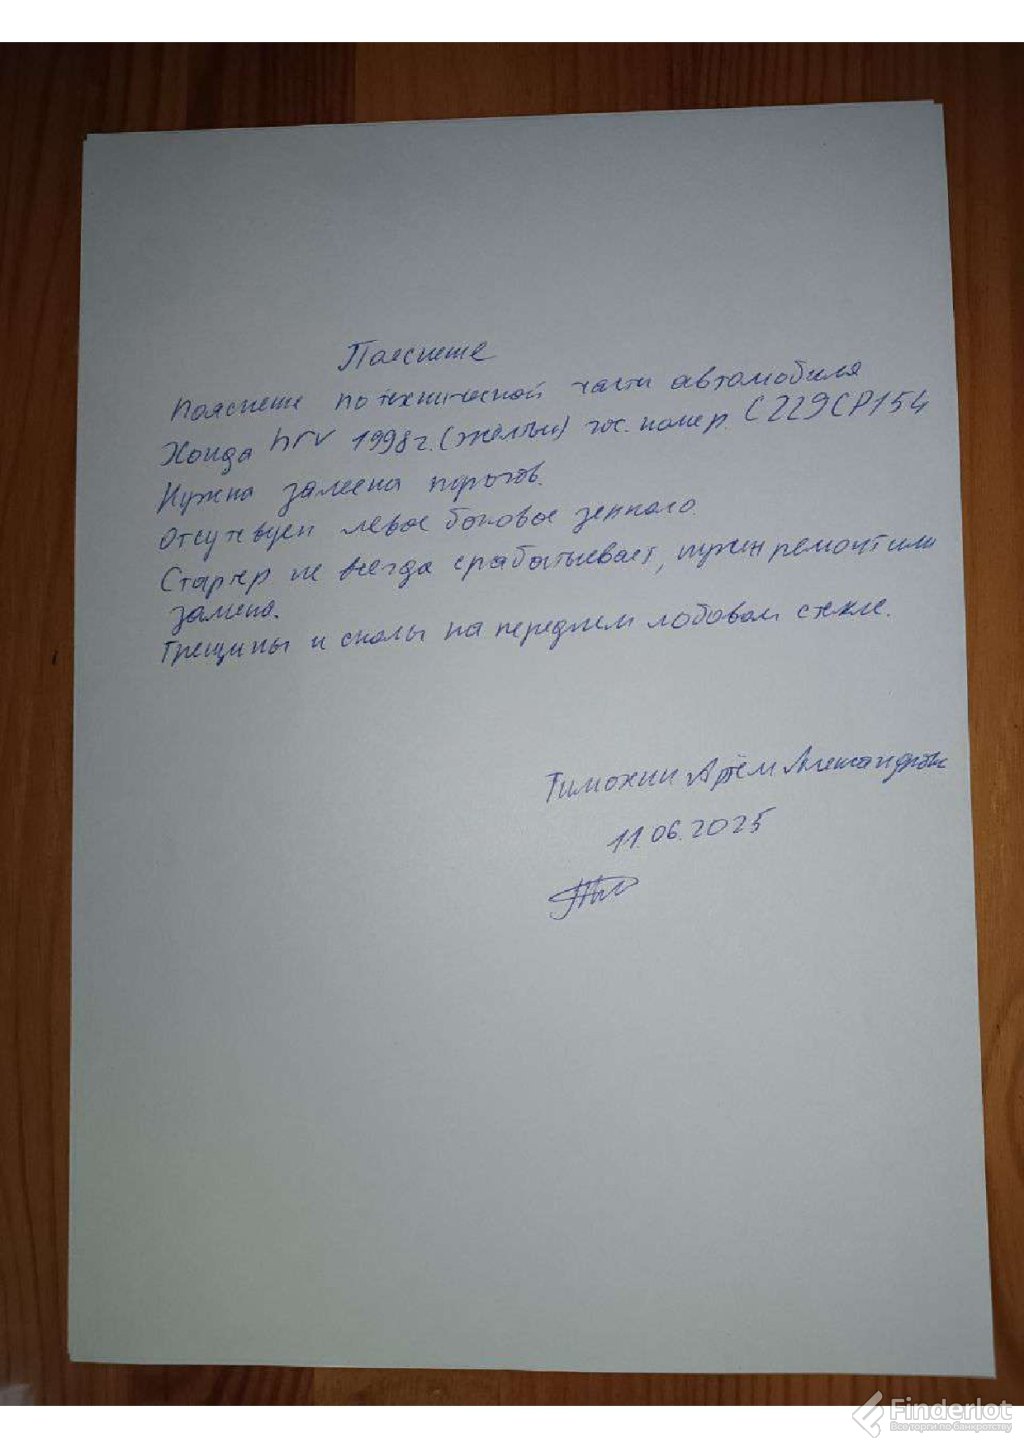 Пояснение
Пояснение по технической части автомобиля
Хонда hrv 1998г. (жёлтый) гос. номер. С229СР154
Нужна замена порогов.
Отсутвует левое боковое зеркало.
Стартер не всегда срабатывает, нужен ремонт или
замена.
Трещины и сколы на переднем лобовом стекле.
Тимохин Артём Александрович
11.06.2025
Finderlot
Все торги по банкротству